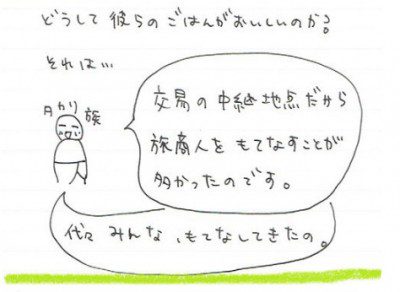 どうして彼らのごはんがおいしいのか?
それは…
タカリ族
交易の中継地点だから
旅商人をもてなすことが
多かったのです。
代々みんな、もてなしてきたの。